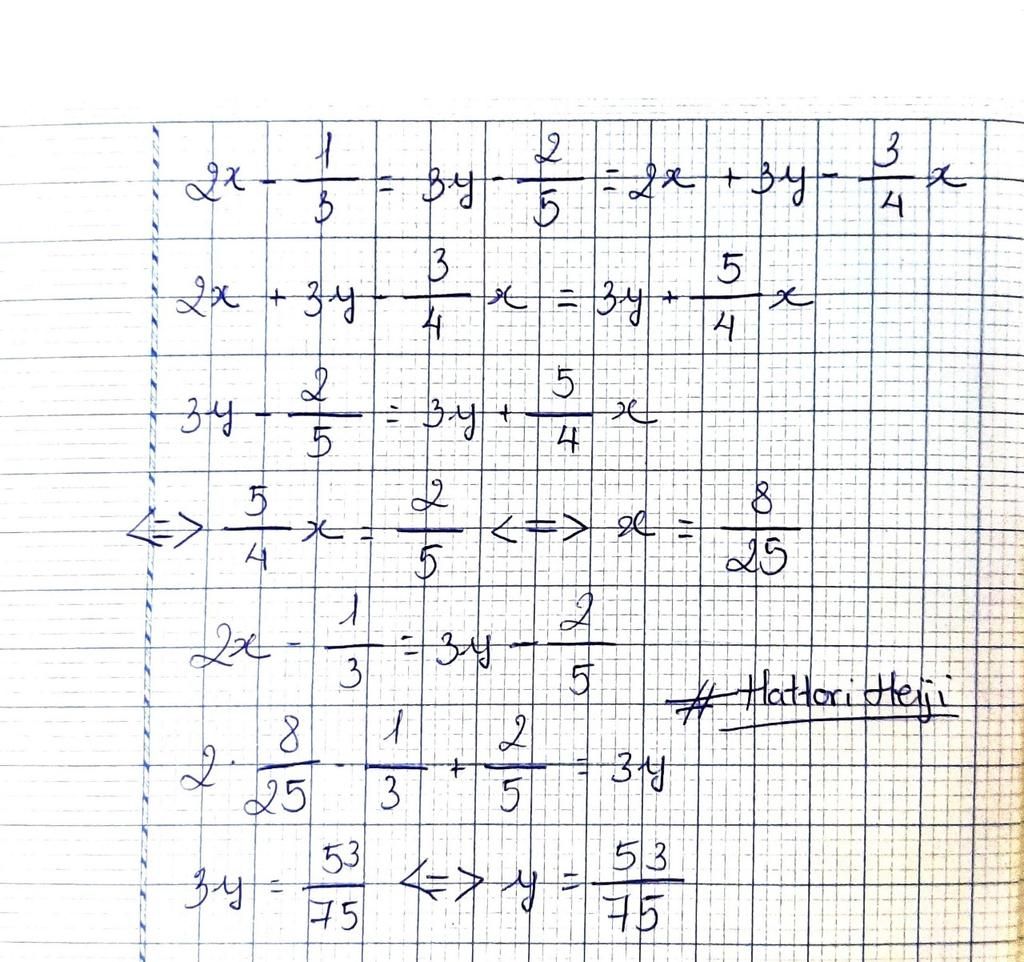 2x - 1/3 = 3y - 2/5 = 2x + 3y - 3/4 x
2x + 3y - 3/4 x = 3y + 5/4 x
3y - 2/5 = 3y + 5/4 x
<=> 5/4 x = 2/5 <=> x = 8/25
2x - 1/3 = 3y - 2/5
# Hattori Heiji
2 · 8/25 - 1/3 + 2/5 = 3y
3y = 53/75 <=> y = 53/75